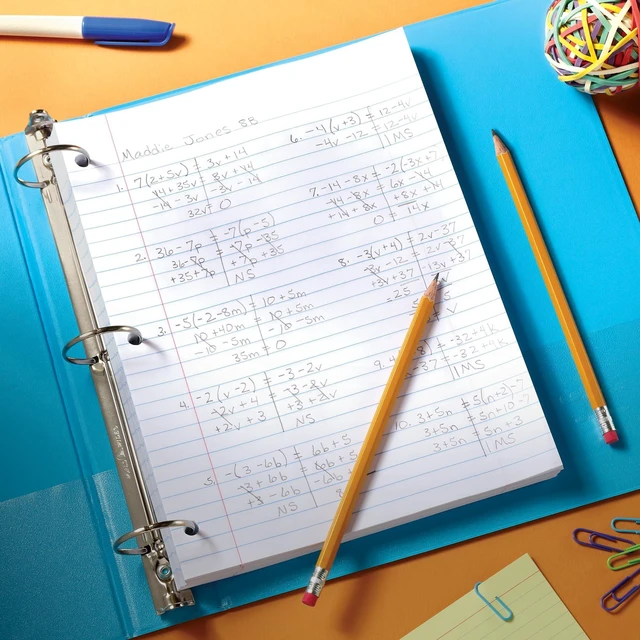 Maddie Jones 8B
1. 7(2+5v) = 3v+14
14+35v = 3v+14
-14-3v -3v-14
32v = 0
2. 36-7p = -7(p-5)
36-7p = -7p+35
+35+7p +7p+35
NS
3. -5(-2-8m) = 10+5m
10+40m = 10+5m
-10-5m = -10-5m
35m = 0
4. -2(v-2) = -3-2v
-2v+4 = -3-2v
+2v+3 +3+2v
NS
5. -(3-6b) = 6b+5
-3+6b = 6b+5
+3-6b
NS
6. -4(v+3) = 12-4v
-4v-12 = 12-4v
IMS
7. -14-8x = -2(3x+7)
-14-8x = 6x-14
+14+8x +8x+14
0 = 14x
8. -3(v+4) = 2v-37
-3v-12 = 2v-37
+3v+37 +3v+37
-25
v
9.
-32+4k
-37 = -32+4k
IMS
10. 3+5n = 5(n+2)-7
3+5n = 5n+10-7
3+5n = 5n+3
IMS